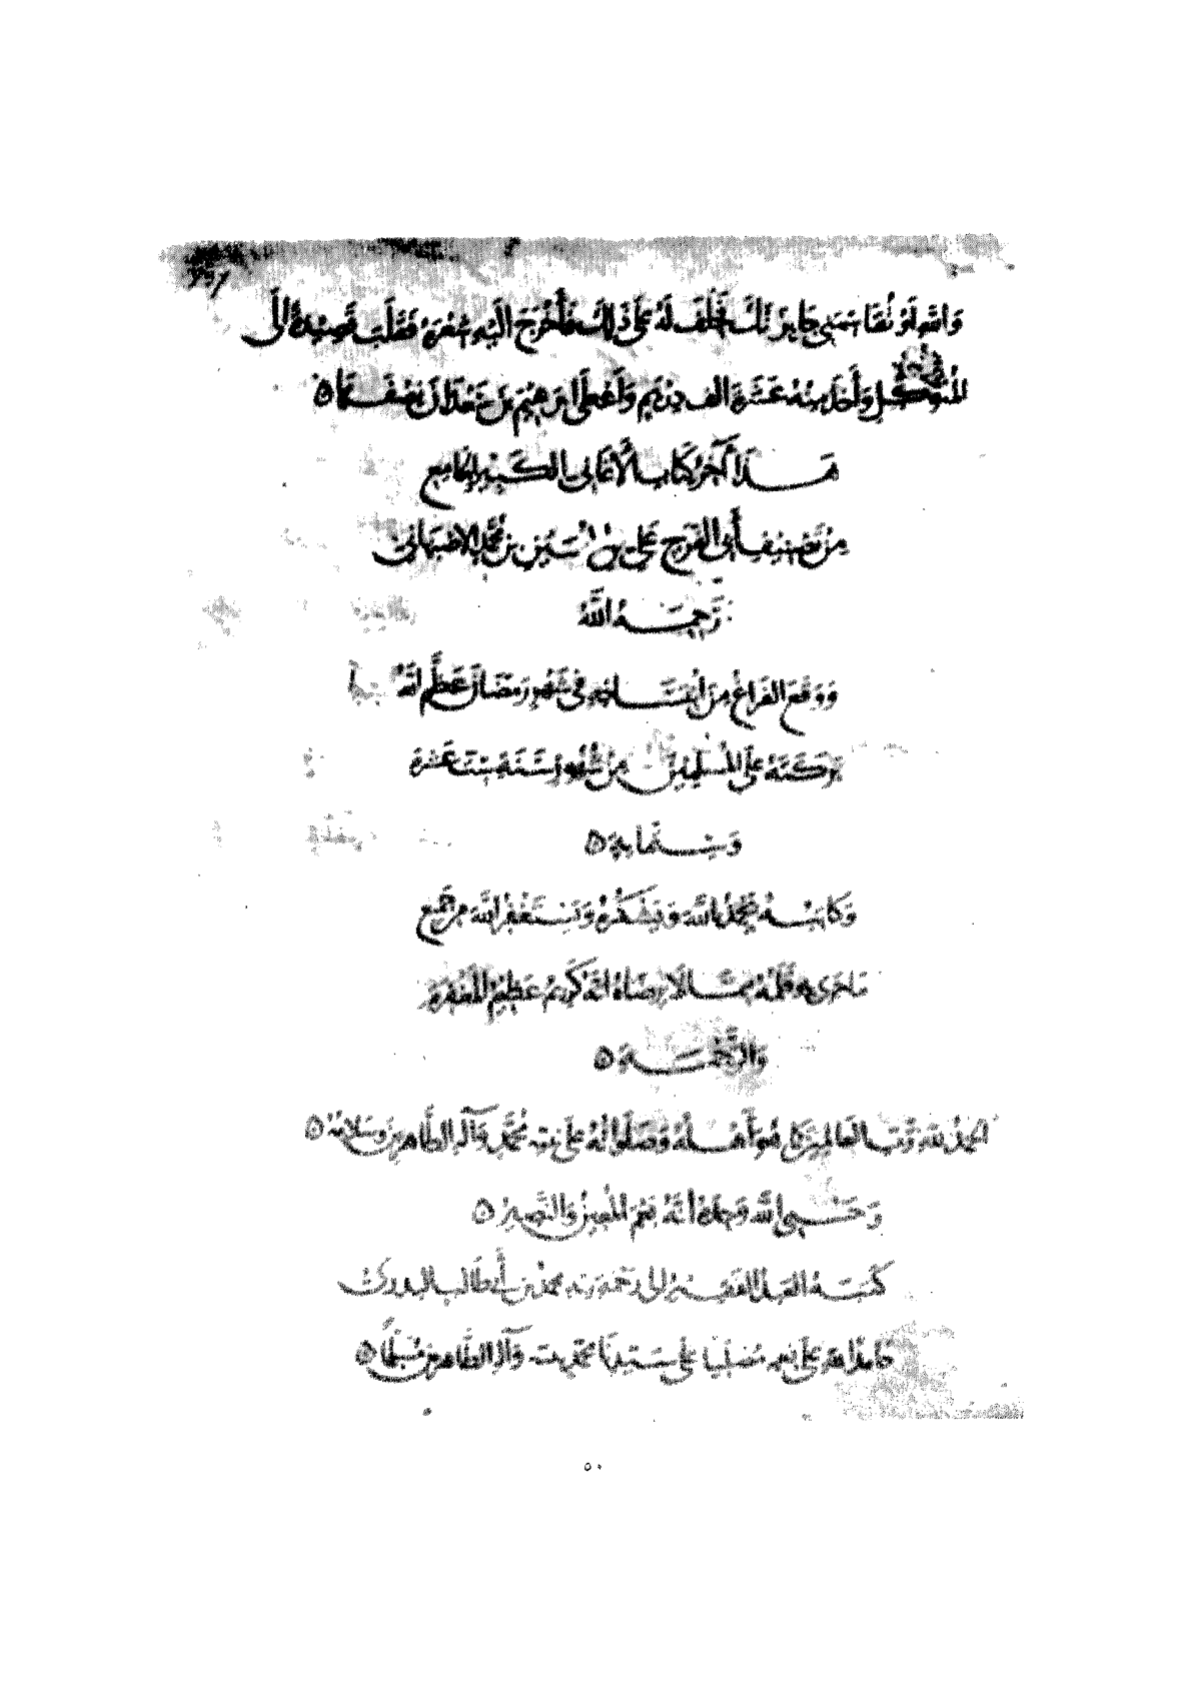 والله لو تقاسمني جايزتك فحلف له على ذلك فأخرج اليه شعره فقلب قصيدة الى
المتوكل وأخذ منه عشرة الف درهم وأعطى ابرهيم بن نصفها ه
هذا آخر كتاب الأغاني الكبير الجامع
من تصنيف أبي الفرج علي بن الحسين بن محمد الاصبهاني
رحمه الله
ووقع الفراغ من في شهر رمضان عظم الله
بركته على المسلمين من شهور سنة ست عشرة
وستمايه ه
وكاتبه يحمد الله ويشكره ويستغفر الله من جميع
ما جرى به قلمه بما لا يرضاه انه كريم عظيم المغفرة
والرحمة ه
الحمد لله رب العالمين كما هو أهله وصلواته على نبيه محمد وآله الطاهرين وسلامه ه
وحسبي الله وحده انه نعم المعين والنصير ه
كتبه العبد الفقير إلى رحمة ربه محمد بن أبي طالب البدري
حامدا لله على نعمه مصليا على سيدنا محمد وآله الطاهرين مسلما ه
٥٠